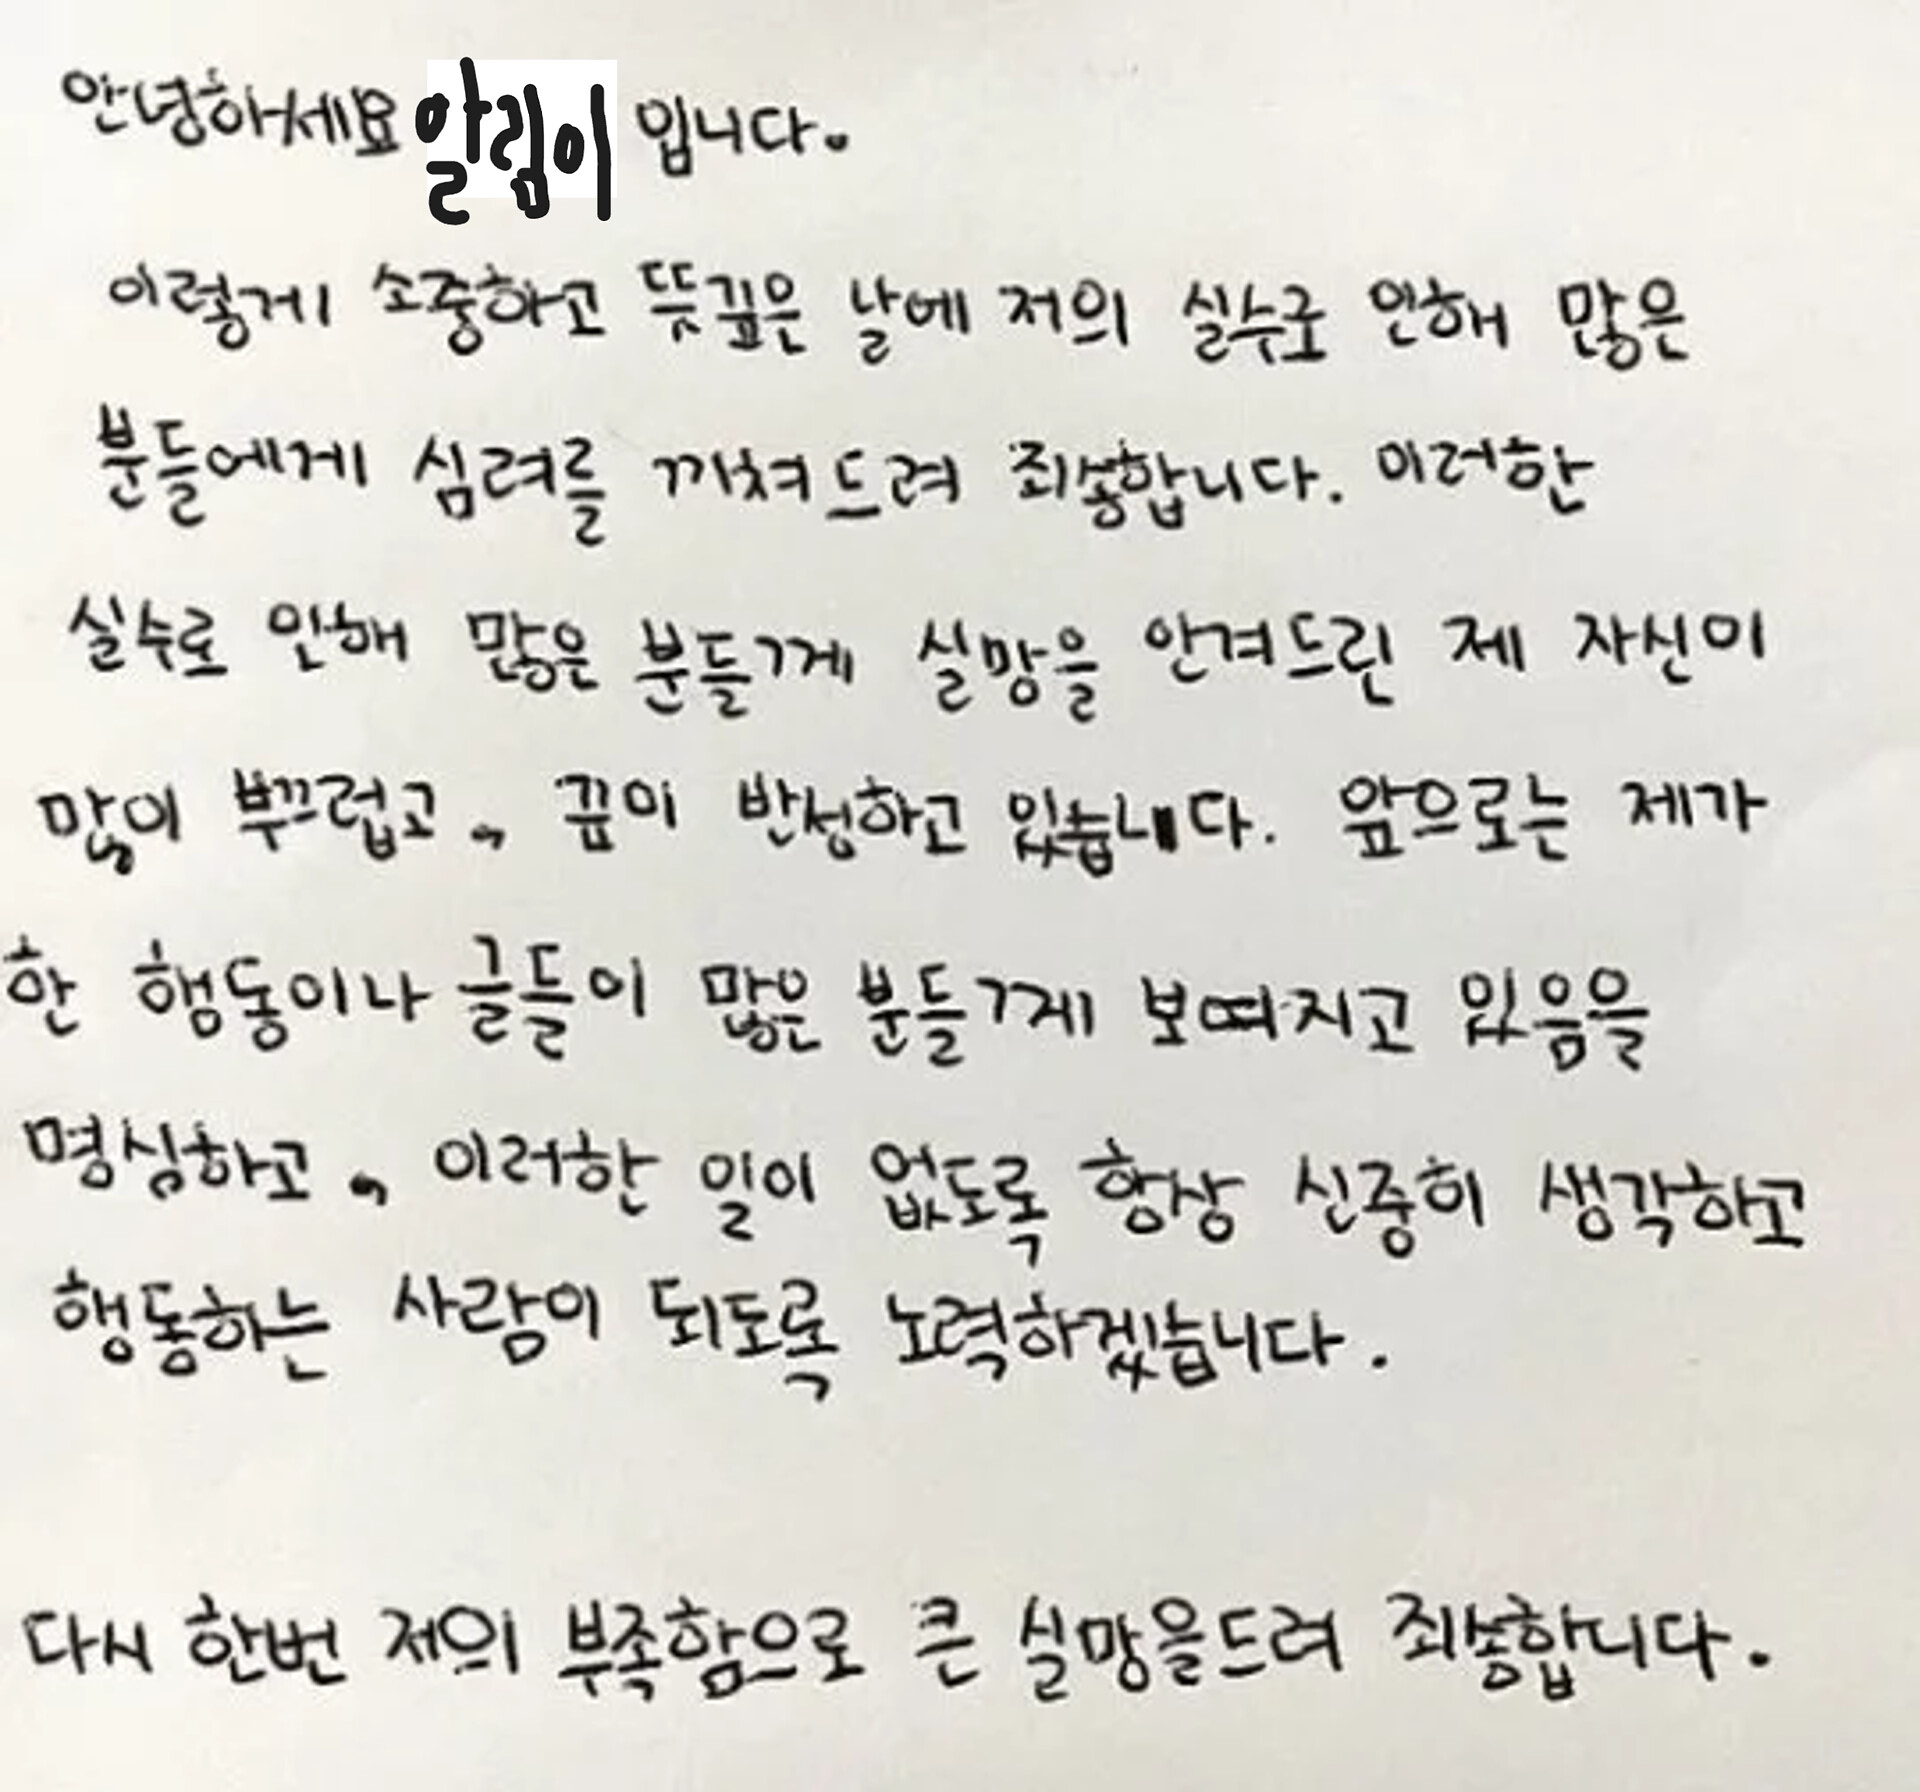 안녕하세요 알림이 입니다.
이렇게 소중하고 뜻깊은 날에 저의 실수로 인해 많은
분들에게 심려를 끼쳐드려 죄송합니다. 이러한
실수로 인해 많은 분들께 실망을 안겨드린 제 자신이
많이 부끄럽고, 깊이 반성하고 있습니다. 앞으로는 제가
한 행동이나 글들이 많은 분들께 보여지고 있음을
명심하고, 이러한 일이 없도록 항상 신중히 생각하고
행동하는 사람이 되도록 노력하겠습니다.
다시 한번 저의 부족함으로 큰 실망을드려 죄송합니다.